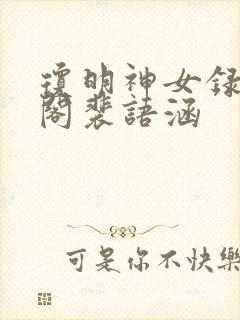 瓊明神女録
閣裴語涵
可是你不快樂